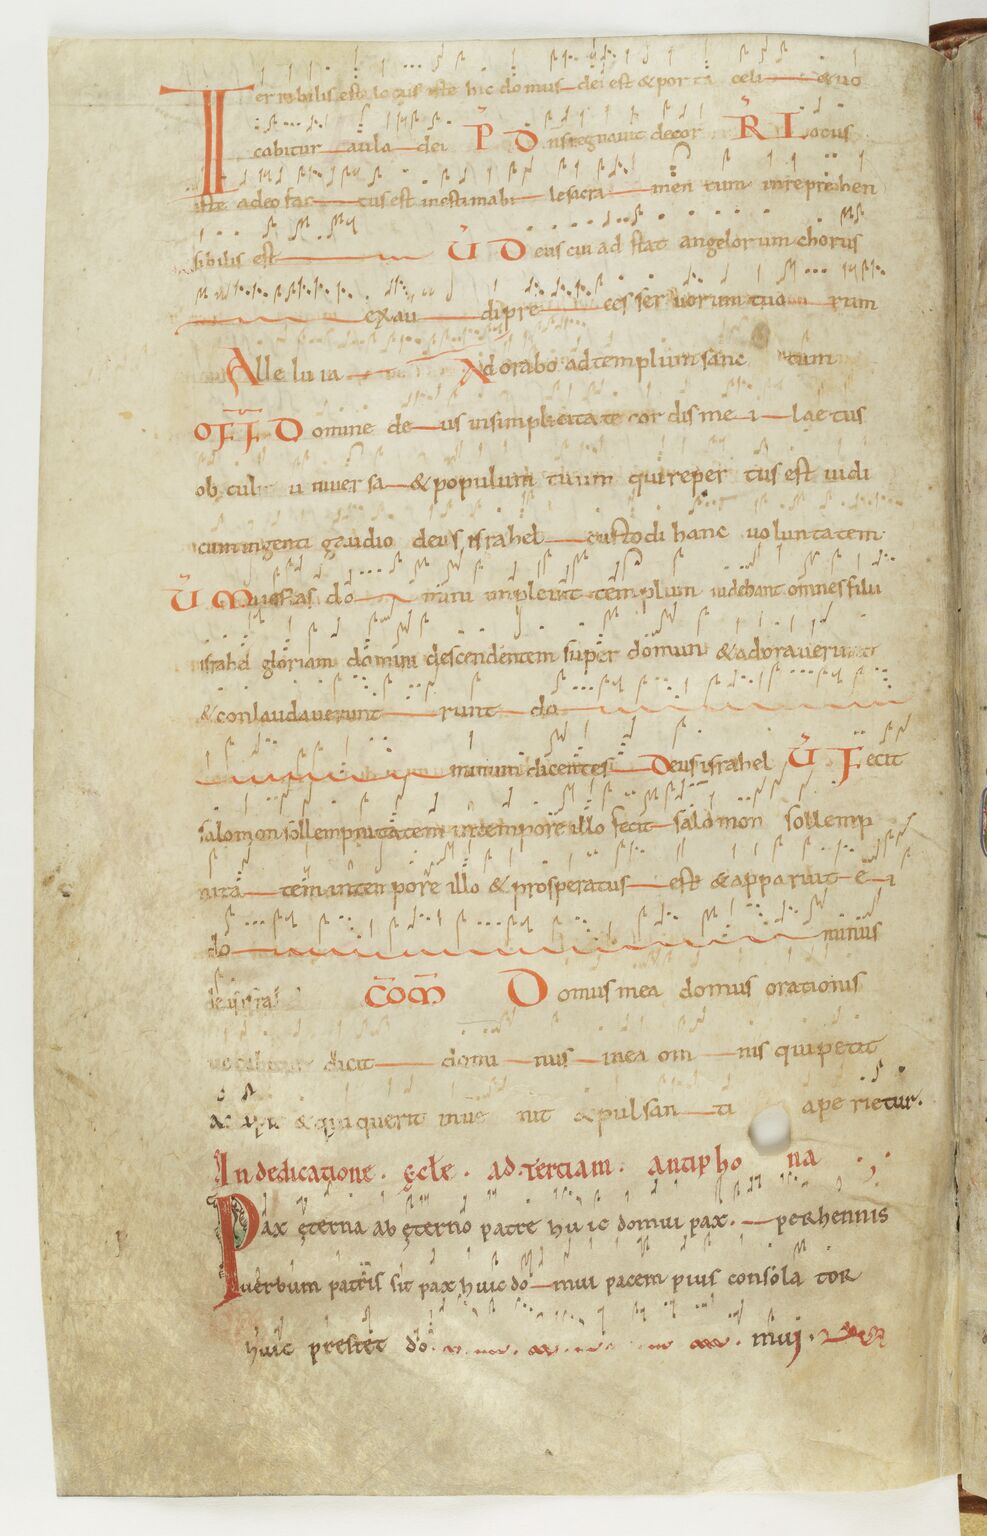 Terribilis est locus iste hic domus dei est & porta celi & uo
cabitur aula dei P̄ Dn̄s regnauit decor R̄ Locus
iste adeo fac tus est inestimabi le sacra men tum inreprehen
sibilis est V̄ Deus cui ad stat angelorum chorus
exau di pre ces ser uorum tuo rum
Alle lu ia Adorabo ad templum sanc tum
OFF Domine de us in simplicitate cor dis me i lae tus
ob tuli u niuer sa & populum tuum qui reper tus est uidi
cum ingenti gaudio deus israhel custodi hanc uoluntatem
V̄ Maiestas do mini impleuit templum uidebant omnes filii
israhel gloriam domini descendentem super domum & adorauerunt
& conlaudauerunt runt do
minum dicentes Deus israhel V̄ Fecit
salomon sollempnitatem in tempore illo fecit salomon sollemp
nita tem in tempore illo & prosperatus est & apparuit e i
do minus
deus isra
COM̄ Domus mea domus orationis
uocabitur dicit domi nus in ea om nis qui petit
accipit & qui querit inue nit & pulsan ti ape rietur.
In dedicatione. ęcle. ad. tertiam. antipho na
Pax ęterna ab ęterno patre hu ic domui pax. perhennis
uerbum patris sit pax huic do mui pacem pius consola tor
huic prestet do mui.